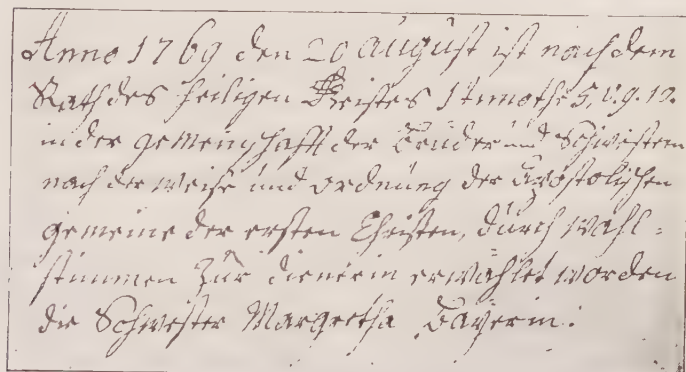 Anno 1769 den 20 August ist nach dem
Rath des heiligen Geistes 1 timothe 5, v. 9. 10.
in der gemeinschafft der brüder und Schwestern
nach der weise und ordnung der Apostolischen
gemeine der ersten Christen, durch wahl-
stimmen zur dienerin erwählet worden
die Schwester Margretha Bayerin.